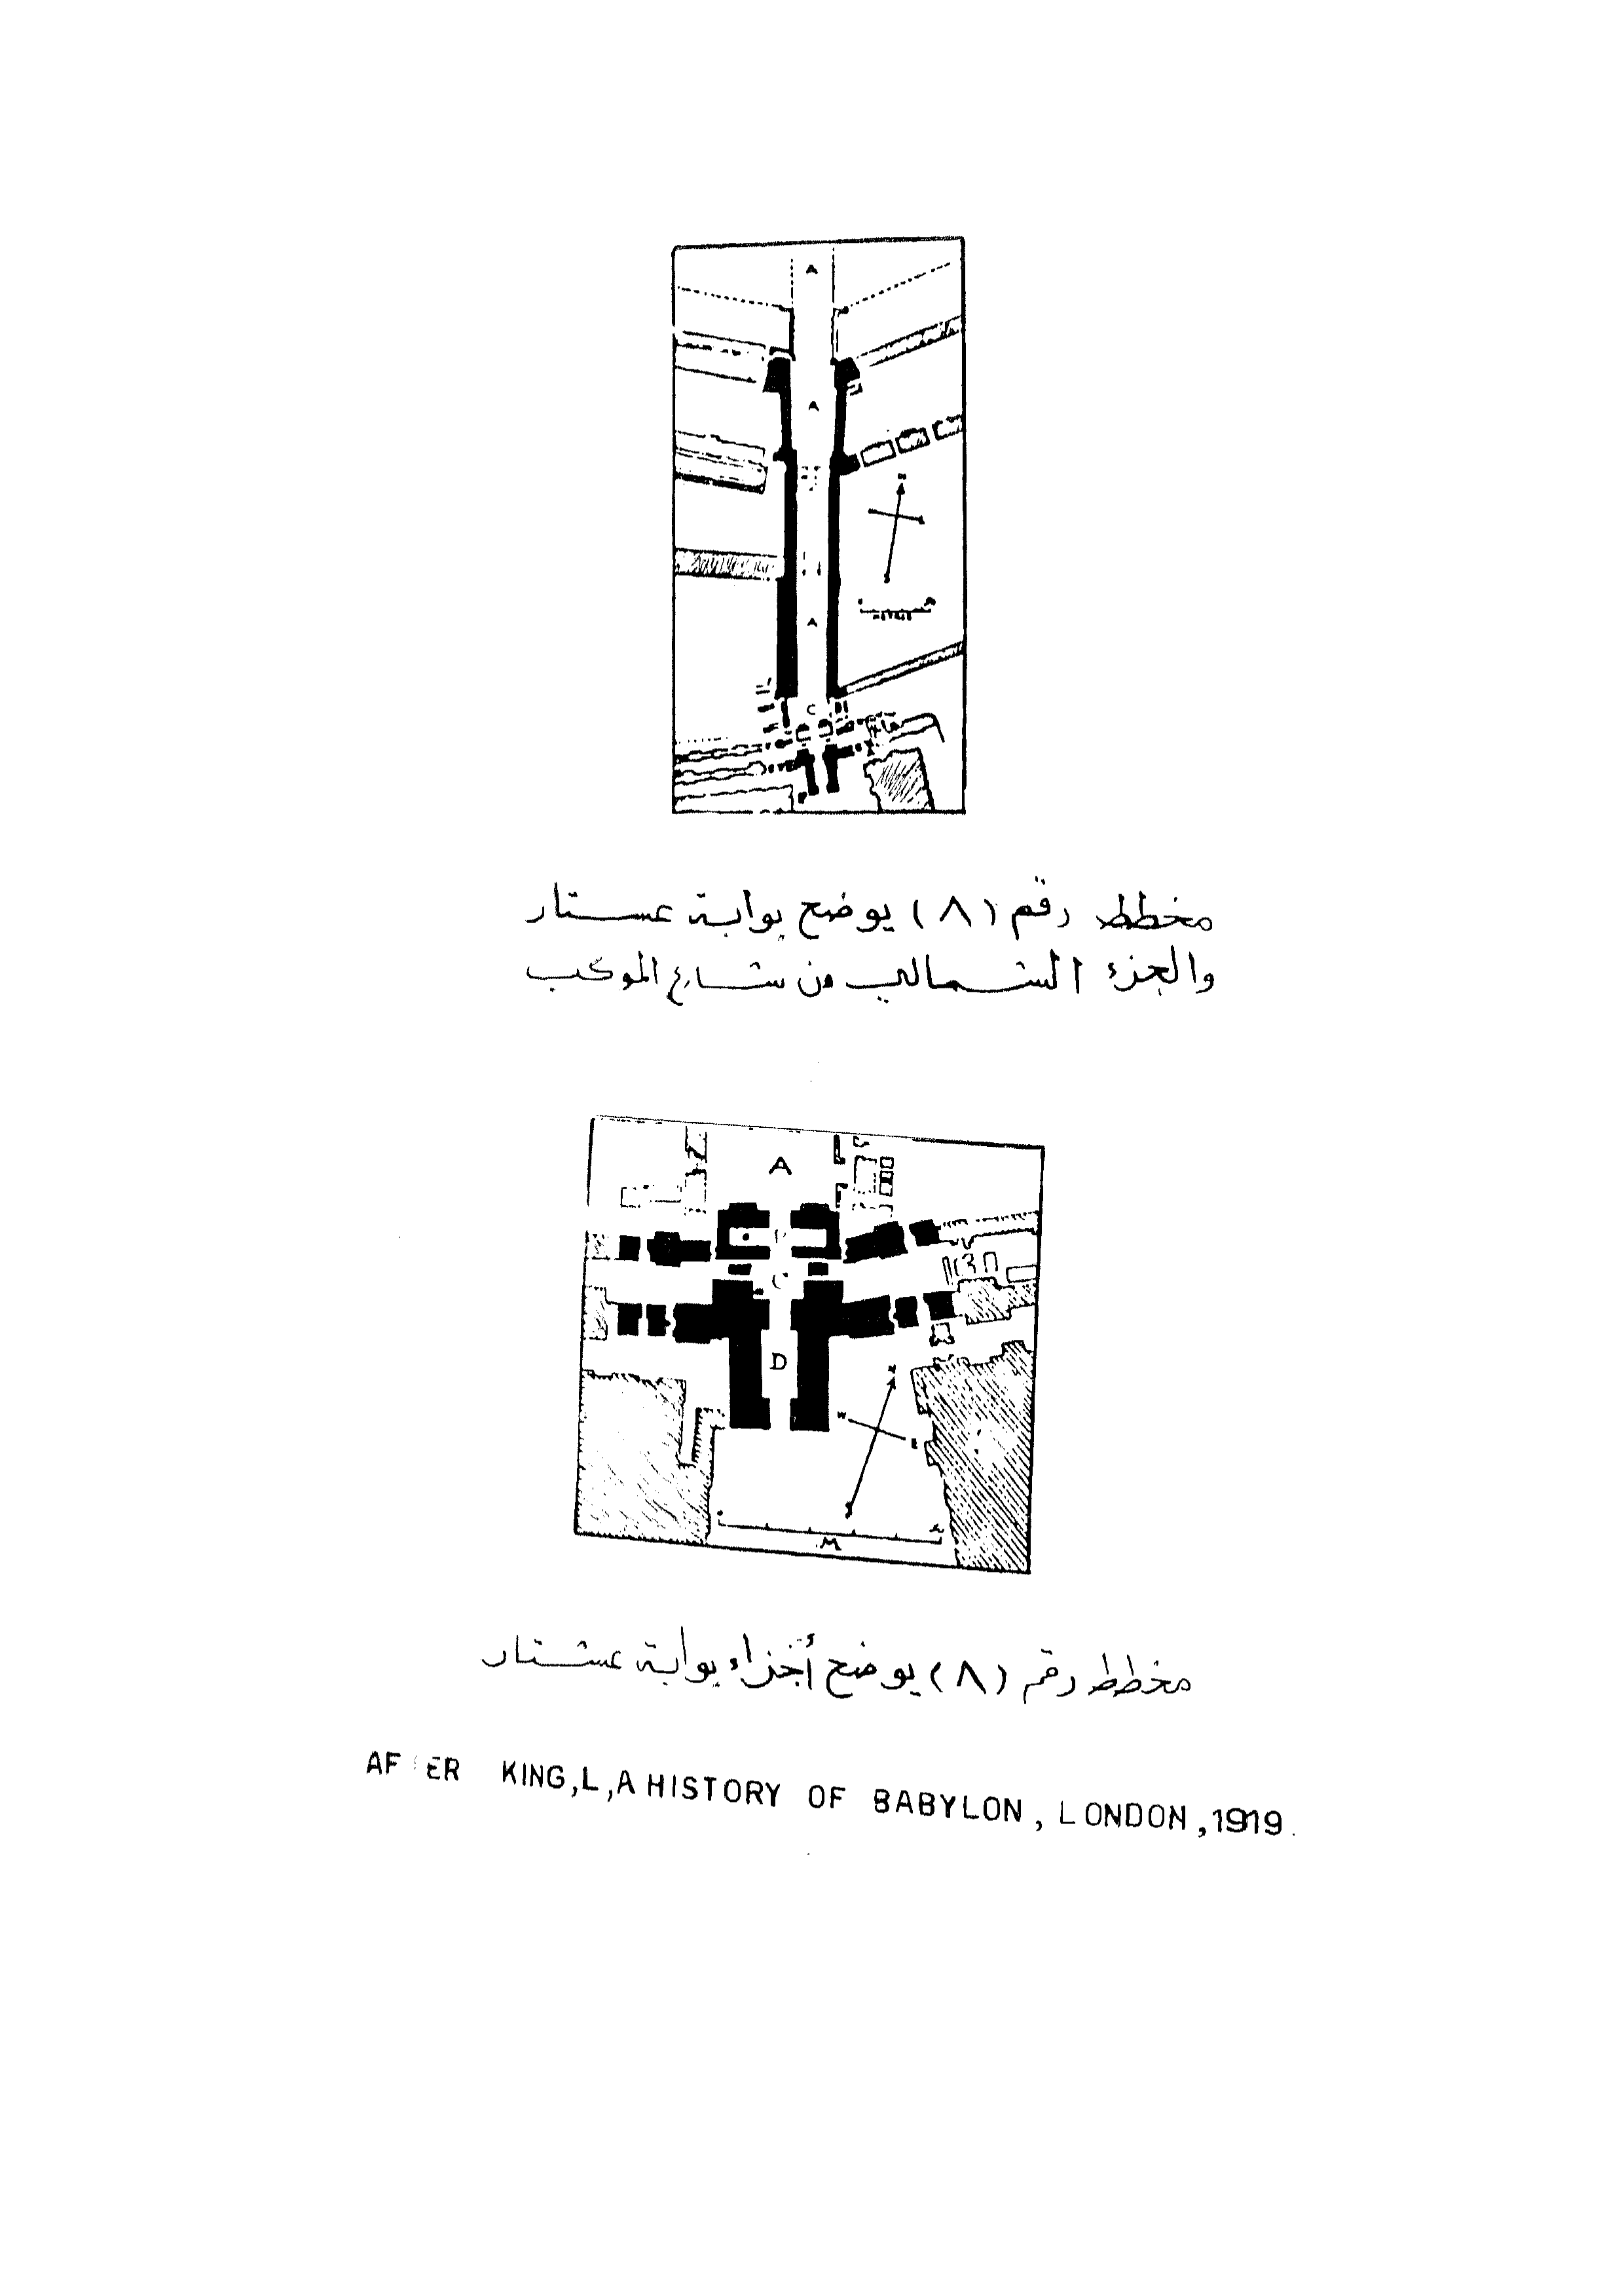 A
A
N
METRES
A
C
مخطط رقم (٨) يوضح بوابة عستار
والجزء الشمالي من شارع الموكب
A
C
D
N
W
E
S
M
مخطط رقم (٨) يوضح أجزاء بوابة عشتار
AFTER KING,L,A HISTORY OF BABYLON, LONDON,1919.